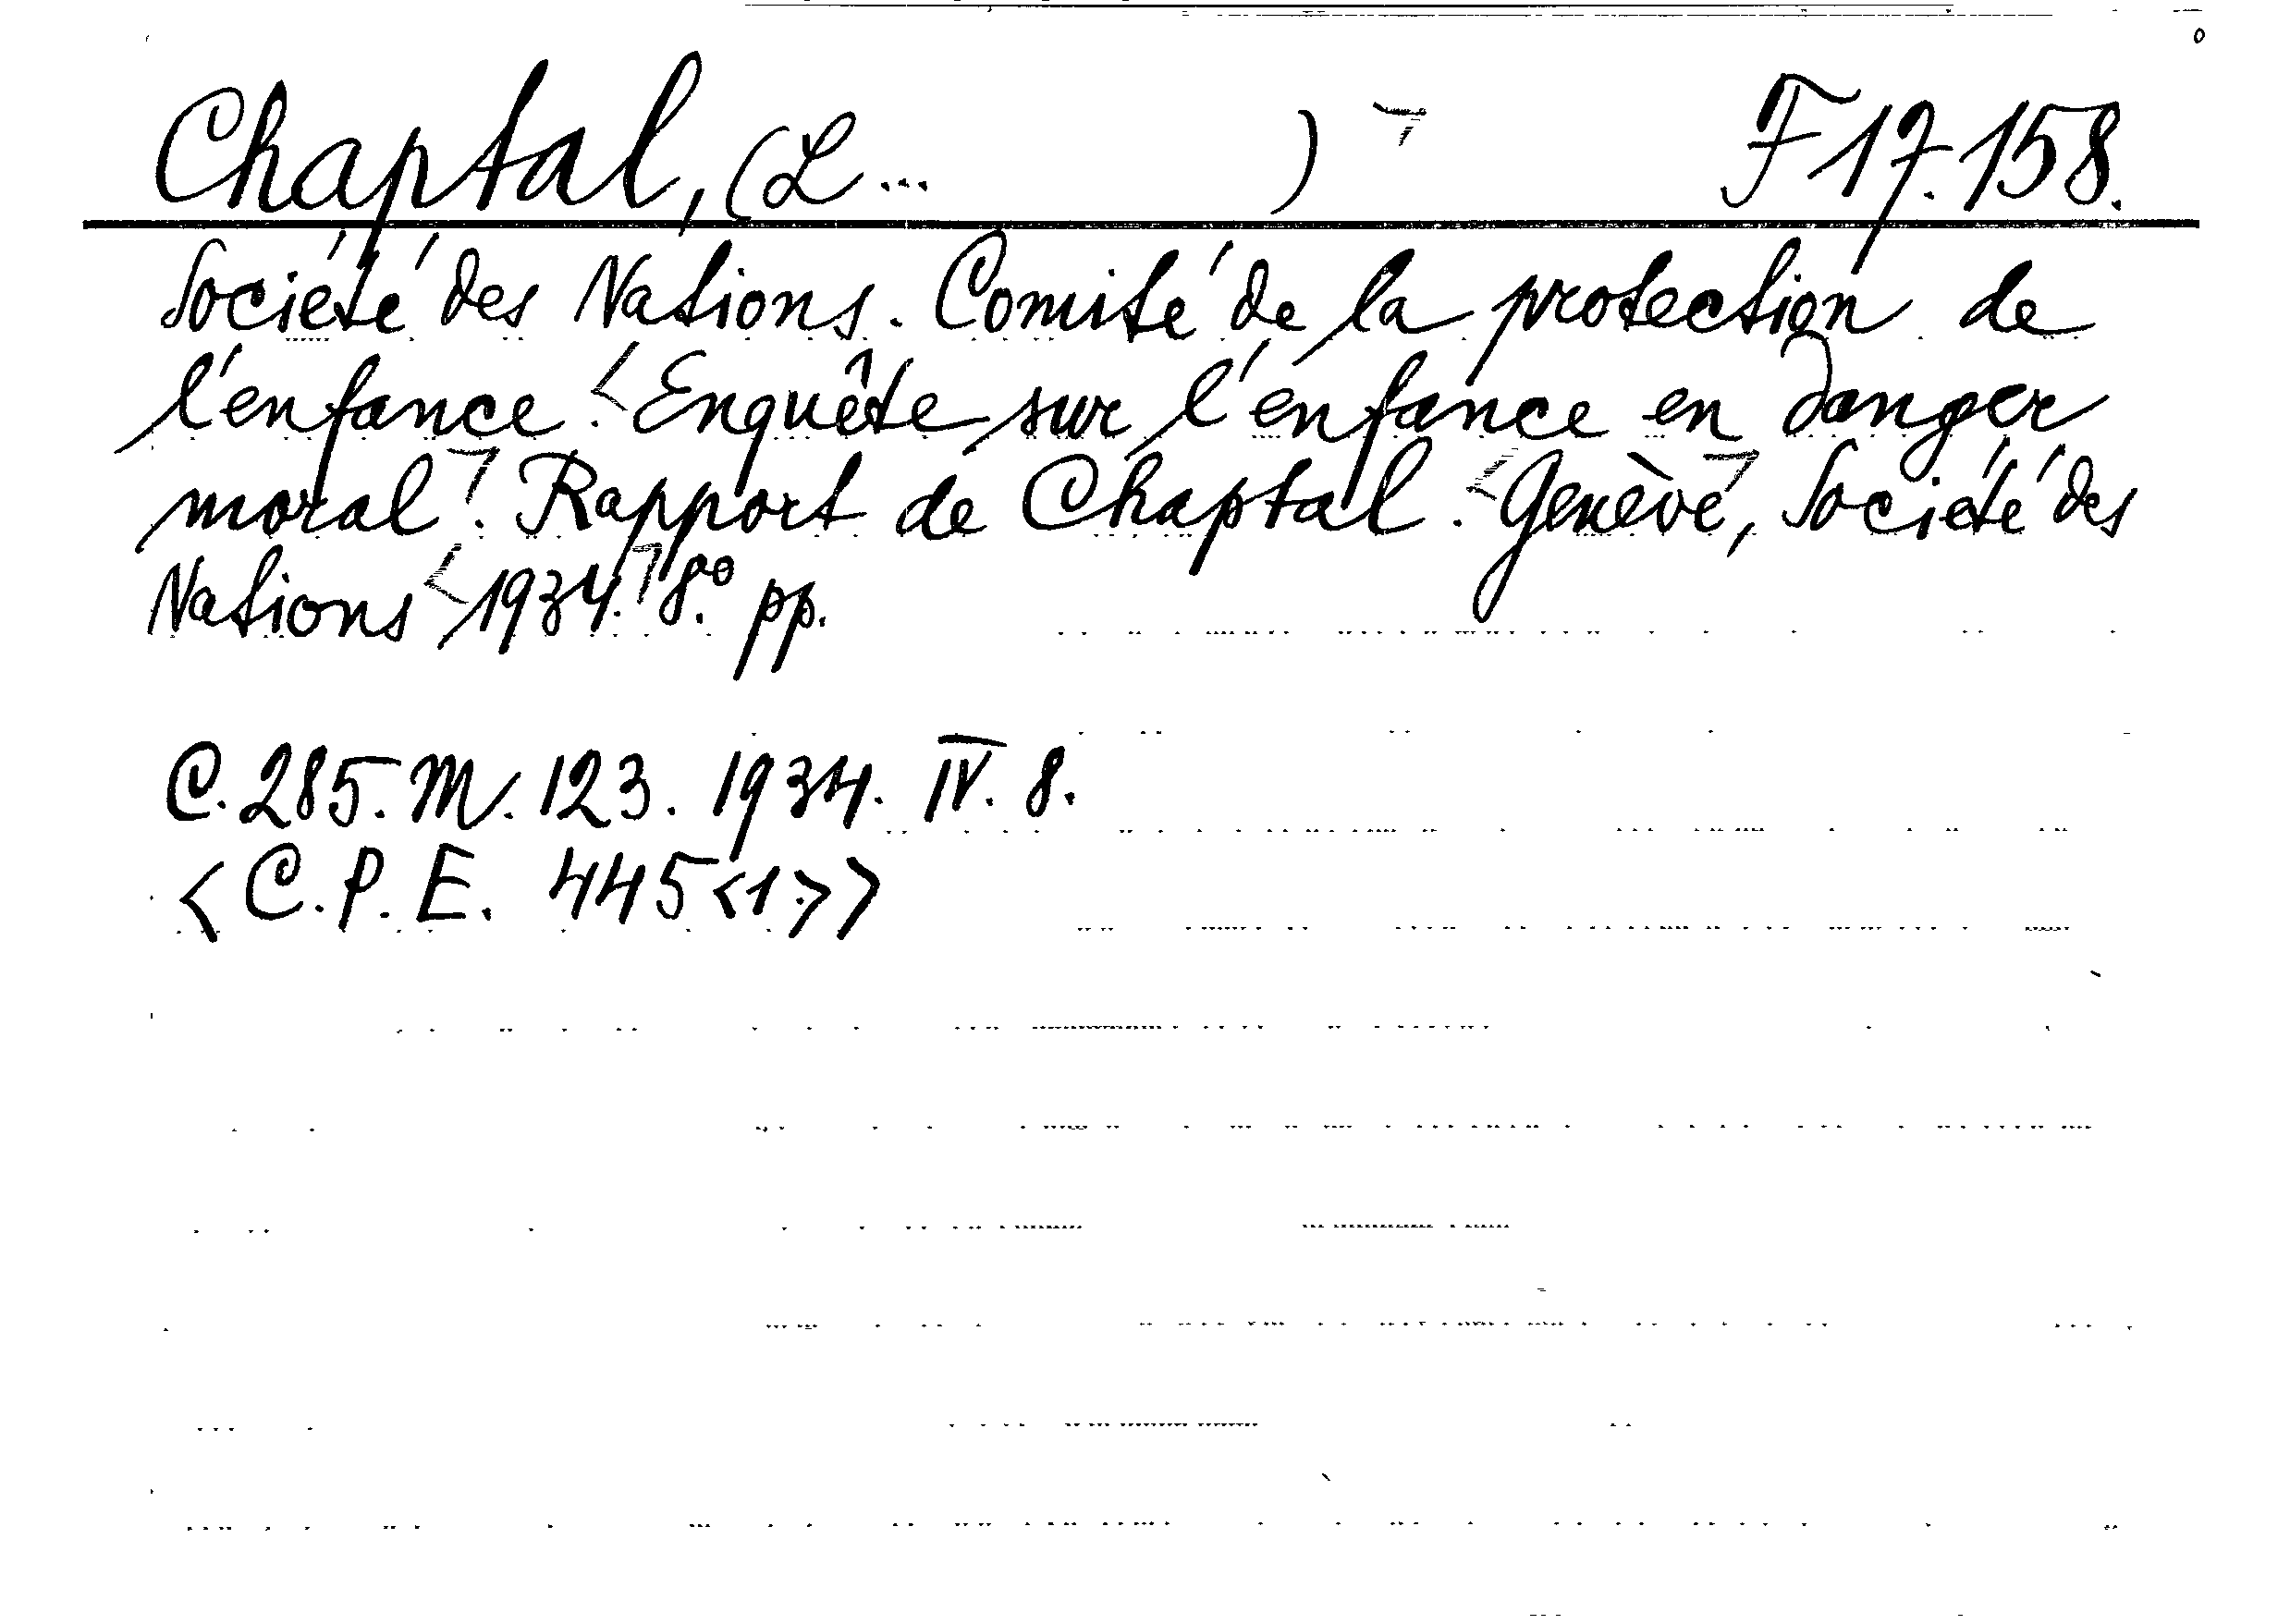 Chaptal, (L... ) F 17.158.
Société des Nations. Comité de la protection de
l'enfance. <Enquête sur l'enfance en danger
moral>. Rapport de Chaptal. <Genève>, Société des
Nations <1934.> 8.° pp.
C. 285. M. 123. 1934. IV. 8.
<C.P.E. 445<1>>